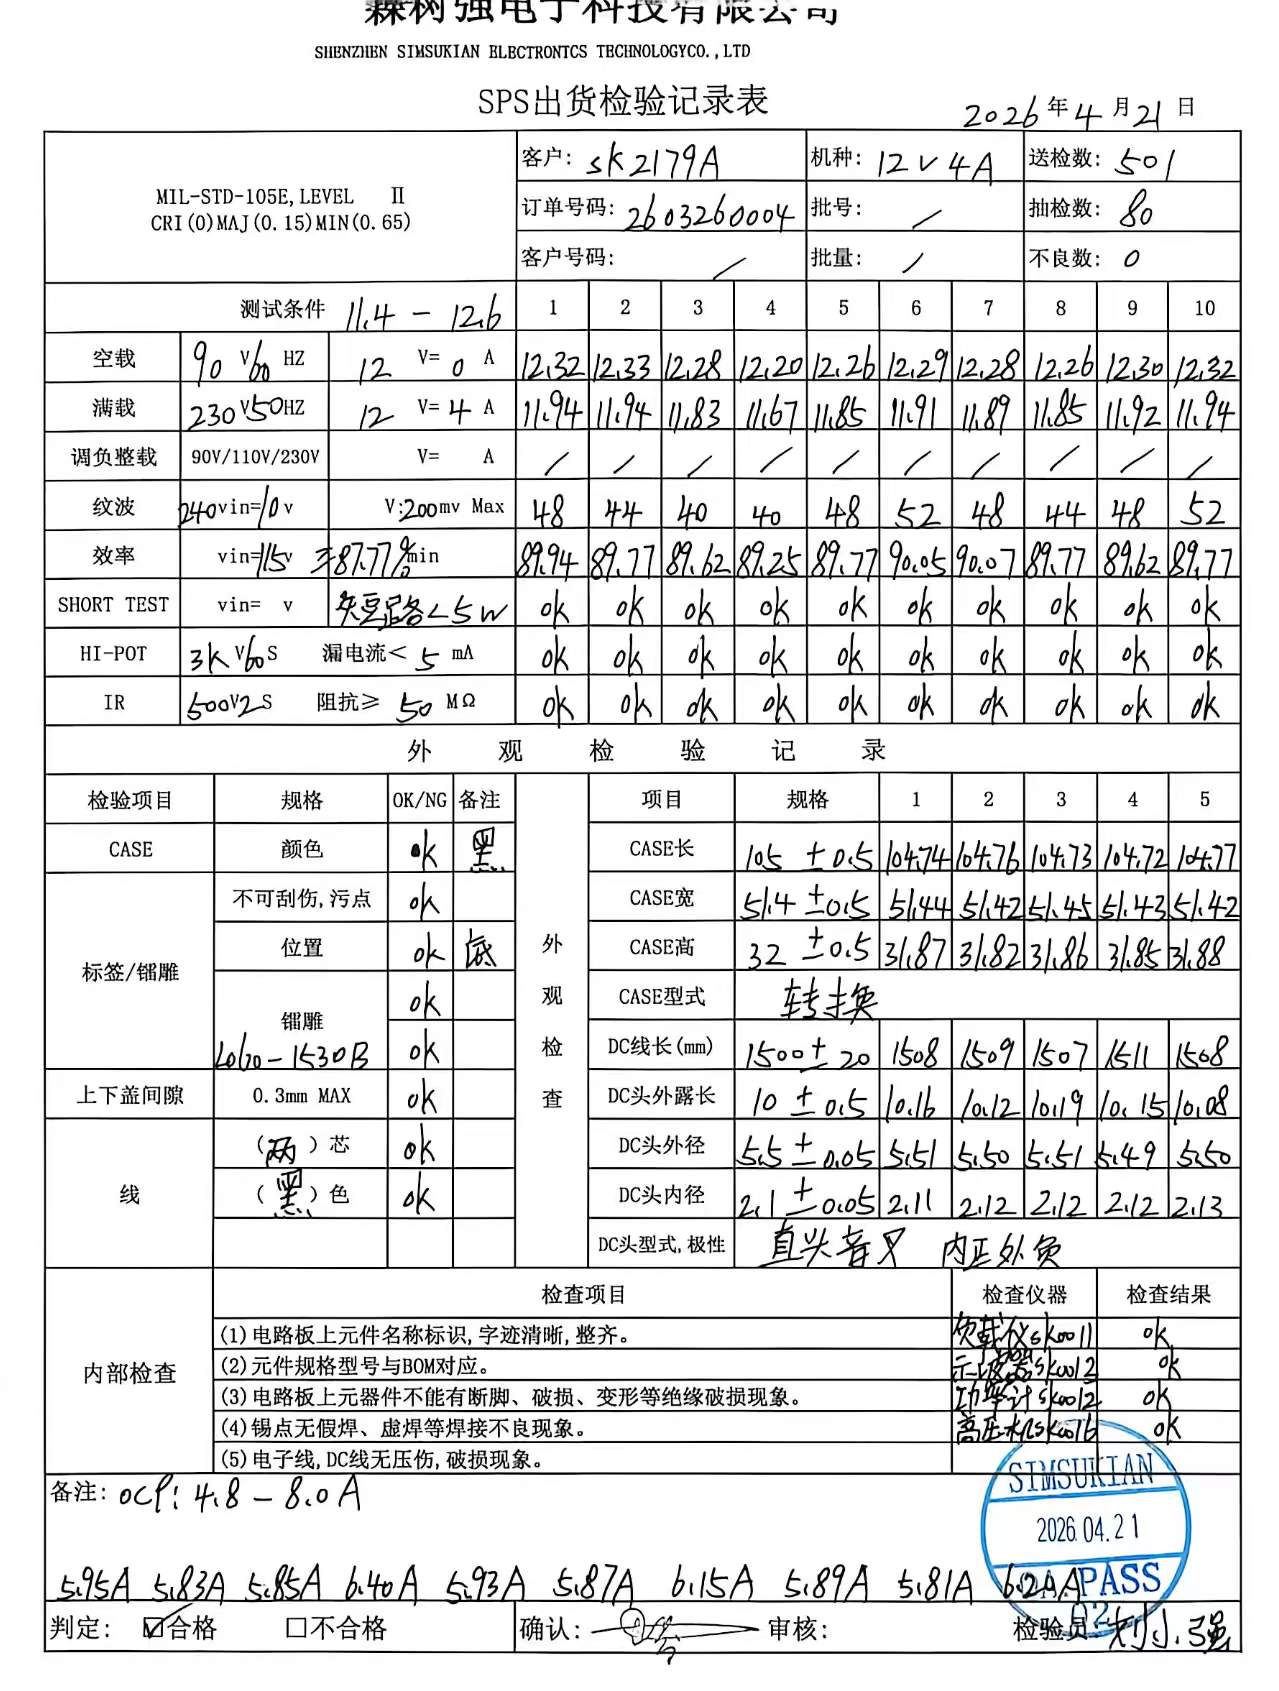 森树强电子科技有限公司
SHENZHEN SIMSUKIAN ELECTRONTCS TECHNOLOGYCO.,LTD
SPS出货检验记录表
2026年4月21日
MIL-STD-105E,LEVEL Ⅱ
CRI(0)MAJ(0.15)MIN(0.65)
客户: SK2179A 机种: 12V4A 送检数: 501
订单号码: 2603260004 批号: / 抽检数: 80
客户号码: / 批量: / 不良数: 0
测试条件 11.4-12.6 1 2 3 4 5 6 7 8 9 10
空载 90 V 60 HZ 12 V= 0 A 12.32 12.33 12.28 12.20 12.26 12.29 12.28 12.26 12.30 12.32
满载 230 V 50 HZ 12 V= 4 A 11.94 11.94 11.83 11.67 11.85 11.91 11.89 11.85 11.92 11.94
调负整载 90V/110V/230V V= A / / / / / / / / / /
纹波 240vin=10v V:200mv Max 48 44 40 40 48 52 48 44 48 52
效率 vin=115v ≥87.77% min 89.94 89.77 89.62 89.25 89.77 90.05 90.07 89.77 89.62 89.77
SHORT TEST vin= v 短路<5W ok ok ok ok ok ok ok ok ok ok
HI-POT 3K V 60 S 漏电流< 5 mA ok ok ok ok ok ok ok ok ok ok
IR 500V2S 阻抗≥ 50 MΩ ok ok ok ok ok ok ok ok ok ok
外观检验记录
检验项目 规格 OK/NG 备注 项目 规格 1 2 3 4 5
CASE 颜色 ok 黑 CASE长 105 ±0.5 104.74 104.76 104.73 104.72 104.77
不可刮伤,污点 ok CASE宽 51.4 ±0.5 51.44 51.42 51.45 51.43 51.42
标签/镭雕 位置 ok 底 外观检查 CASE高 32 ±0.5 31.87 31.82 31.86 31.85 31.88
ok CASE型式 转换
镭雕 -1530B ok DC线长(mm) 1500±20 1508 1509 1507 1511 1508
上下盖间隙 0.3mm MAX ok DC头外露长 10 ±0.5 10.16 10.12 10.19 10.15 10.08
线 (两)芯 ok DC头外径 5.5 ±0.05 5.51 5.50 5.51 5.49 5.50
(黑)色 ok DC头内径 2.1 ±0.05 2.11 2.12 2.12 2.12 2.13
DC头型式,极性 直头音叉 内正外负
内部检查 检查项目 检查仪器 检查结果
(1)电路板上元件名称标识,字迹清晰,整齐。 负载仪SK0011 ok
(2)元件规格型号与BOM对应。 示波器SK0012 ok
(3)电路板上元器件不能有断脚、破损、变形等绝缘破损现象。 功率计SK0012 ok
(4)锡点无假焊、虚焊等焊接不良现象。 高压机SK0016 ok
(5)电子线,DC线无压伤,破损现象。
SIMSUKIAN
备注: OCP: 4.8-8.0A
2026.04.21
5.95A 5.83A 5.85A 6.40A 5.93A 5.87A 6.15A 5.89A 5.81A 6.20A
PASS
02
判定: ☑合格 □不合格 确认: 审核: 检验员: 刘小强